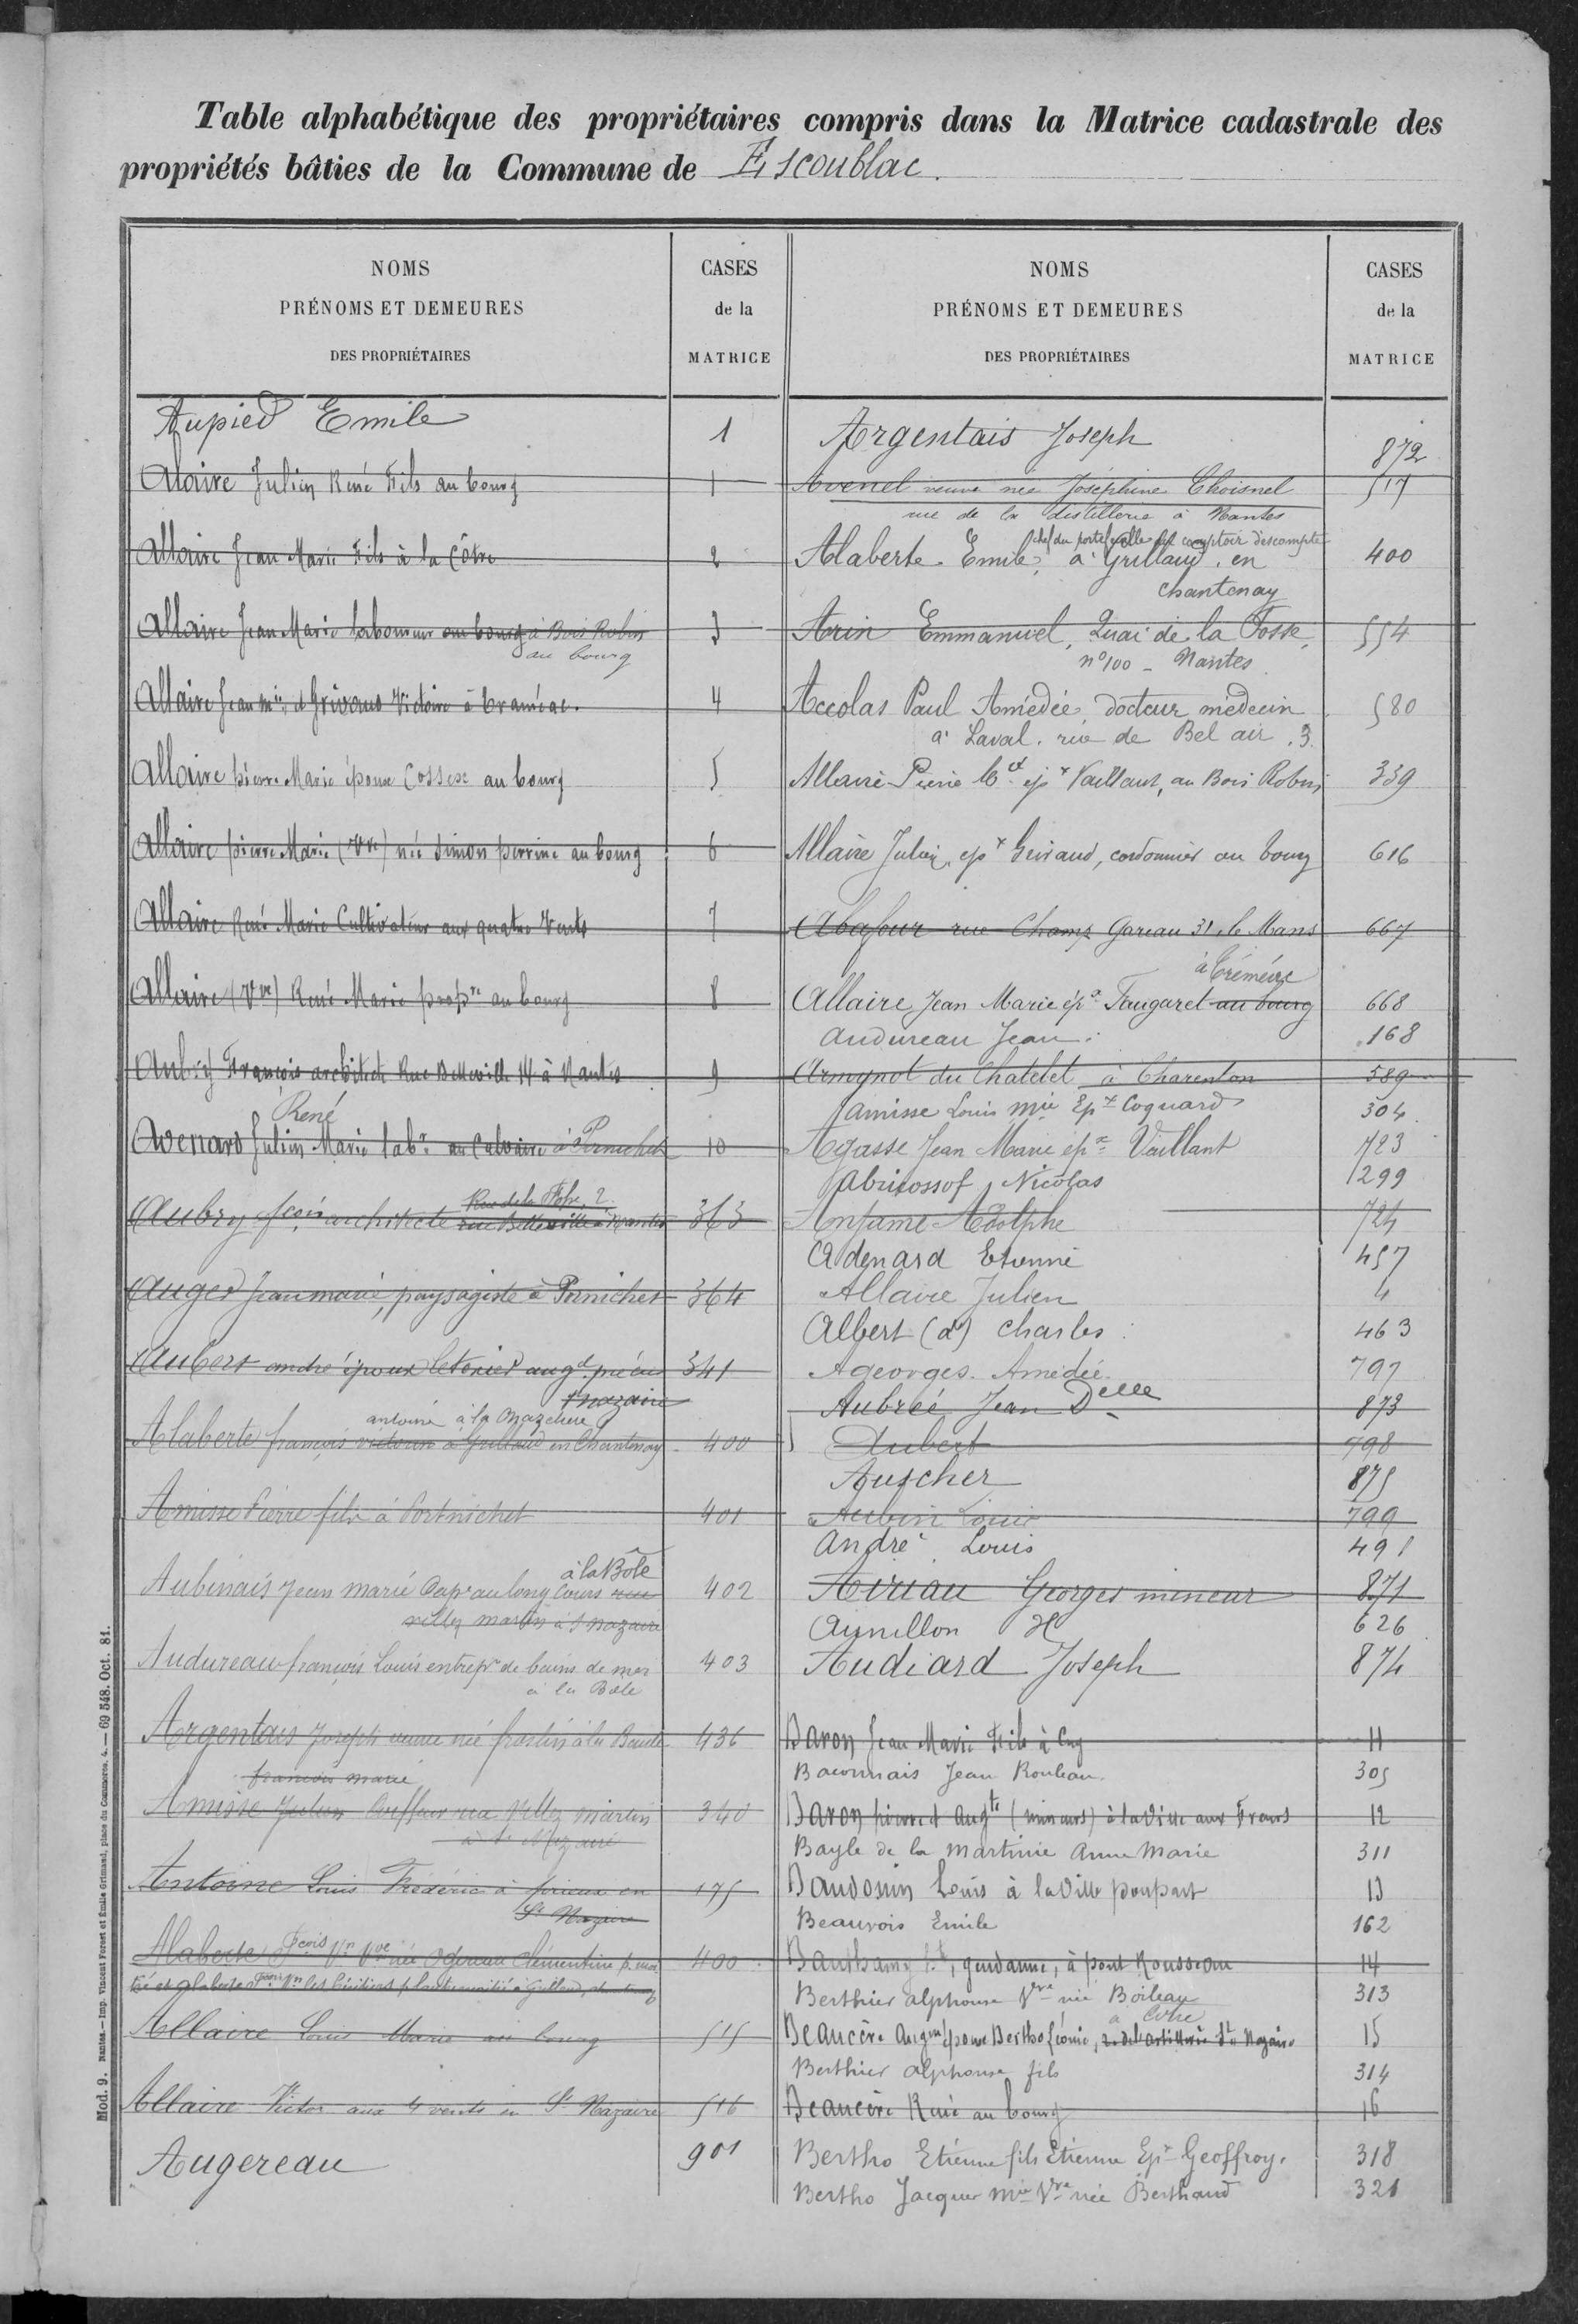 Table alphabétique des propriétaires compris dans la Matrice cadastrale des
propriétés bâties de la Commune de Escoublac.
NOMS
PRÉNOMS ET DEMEURES
DES PROPRIÉTAIRES
CASES
de la
MATRICE
Aupied Emile 1
Alaire Julien René Fils au bourg 1
Allaire Jean Marie Fils à la Côte 2
Allaire Jean Marie laboureur au bourg à Bois Robin 3
au bourg
Allaire Jean Mie et Grivaud Victoire à Craméac. 4
Allaire pierre Marie époux Cosses au bourg 5
Allaire pierre Marie (Vve) née Simon perrine au bourg 6
Allaire René Marie Cultivateur aux quatre Vents 7
Allaire (Vve) René Marie propre au bourg 8
Aubry François architecte Rue Belleville 14 à Nantes 9
René
Avenard Julien Marie labr au Calvaire à Pornichet 10
Rue de la Fosse, 2.
Aubry fçois architecte rue Belleville à Nantes 363
Auger Jean marie, paysagiste à Pornichet 364
Aubert andré époux Letexier augd pré en 341
St nazaire
antoine à la Mazelière
Alaberte françois victorin à Grillaud en Chantenay 400
Amisse Pierre fils à Portnichet 401
à la Bôle
Aubinais Jean marie Capne au long Cours rue 402
villez martin à St nazaire
Audureau françois Louis entrepr de bains de mer 403
à la Bole
Argentais Joseph veuve née à la Baule 436
francois marie
Amisse Julien Coiffeur rue Villez Martin 340
à St Nazaire
Antoine Louis Frédéric à en 175
St Nazaire
Alaberte Fçois Vn Vve née Clémentine 400
Allaire Louis Marie au bourg 515
Allaire Victor aux 4 vents en St Nazaire 516
Augereau 901
NOMS
PRÉNOMS ET DEMEURES
DES PROPRIÉTAIRES
CASES
de la
MATRICE
Argentais Joseph 872
Avenel veuve née Joséphine Choisnel 517
rue de la distillerie à Nantes
chef du portefeuille au comptoir d'escompte
Alaberte Emile, à Grillaud. en 400
Chantenay
Arin Emmanuel, Quai de la Fosse, 554
n° 100 - Nantes
Accolas Paul Amédée, docteur médecin 580
à Laval. rue de Bel air. 3.
Allaire Pierre Mie épx Vaillant, au Bois Robin 339
Allaire Julien, épx Grivaud, cordonnier au bourg 616
Abafour rue Champ Gareau 31, le Mans 667
à Créméac
Allaire Jean Marie épx Fougaret au bourg 668
Audureau Jean. 168
Armynot du Chatelet à Charenton 589
Amisse Louis Mie Epx Coquard 304
Agasse Jean Marie épx Vaillant 723
Abricossof, Nicolas 1299
Anfume Adolphe 724
Adenard Etienne 457
Allaire Julien 4
Albert (d') Charles 463
Ageorges. Amédée. 797
Aubrée Jean Delle 873
Aubert 798
Auscher 875
Aubin Louis 799
André Louis 491
Airiau Georges mineur 871
Aymillon H 626
Audiard Joseph 874
Baron Jean Marie Fils à Cuy 11
Baconnais Jean Rouleau. 305
Baron pierre et Augte (mineurs) à la Ville aux Fèvres 12
Bayle de la Martinie Anne Marie 311
Baudouin Louis à la Ville poupart 13
Beauvois Emile 162
gendarme, à pont Rousseau 14
Berthier alphonse Vve née Boileau 313
à Côte
Beaucère Augm épouse Bertho Léonie, r. de l'artillerie St Nazaire 15
Berthier alphonse fils 314
Beaucère René au bourg 16
Bertho Etienne fils Etienne Epx Geoffroy. 318
Bertho Jacques Mie Vve née Berthaud 321
Mod. 9. Nantes. — Imp. Vincent Forest et Émile Grimaud, place du Commerce. 4. — 69 548. Oct. 81.